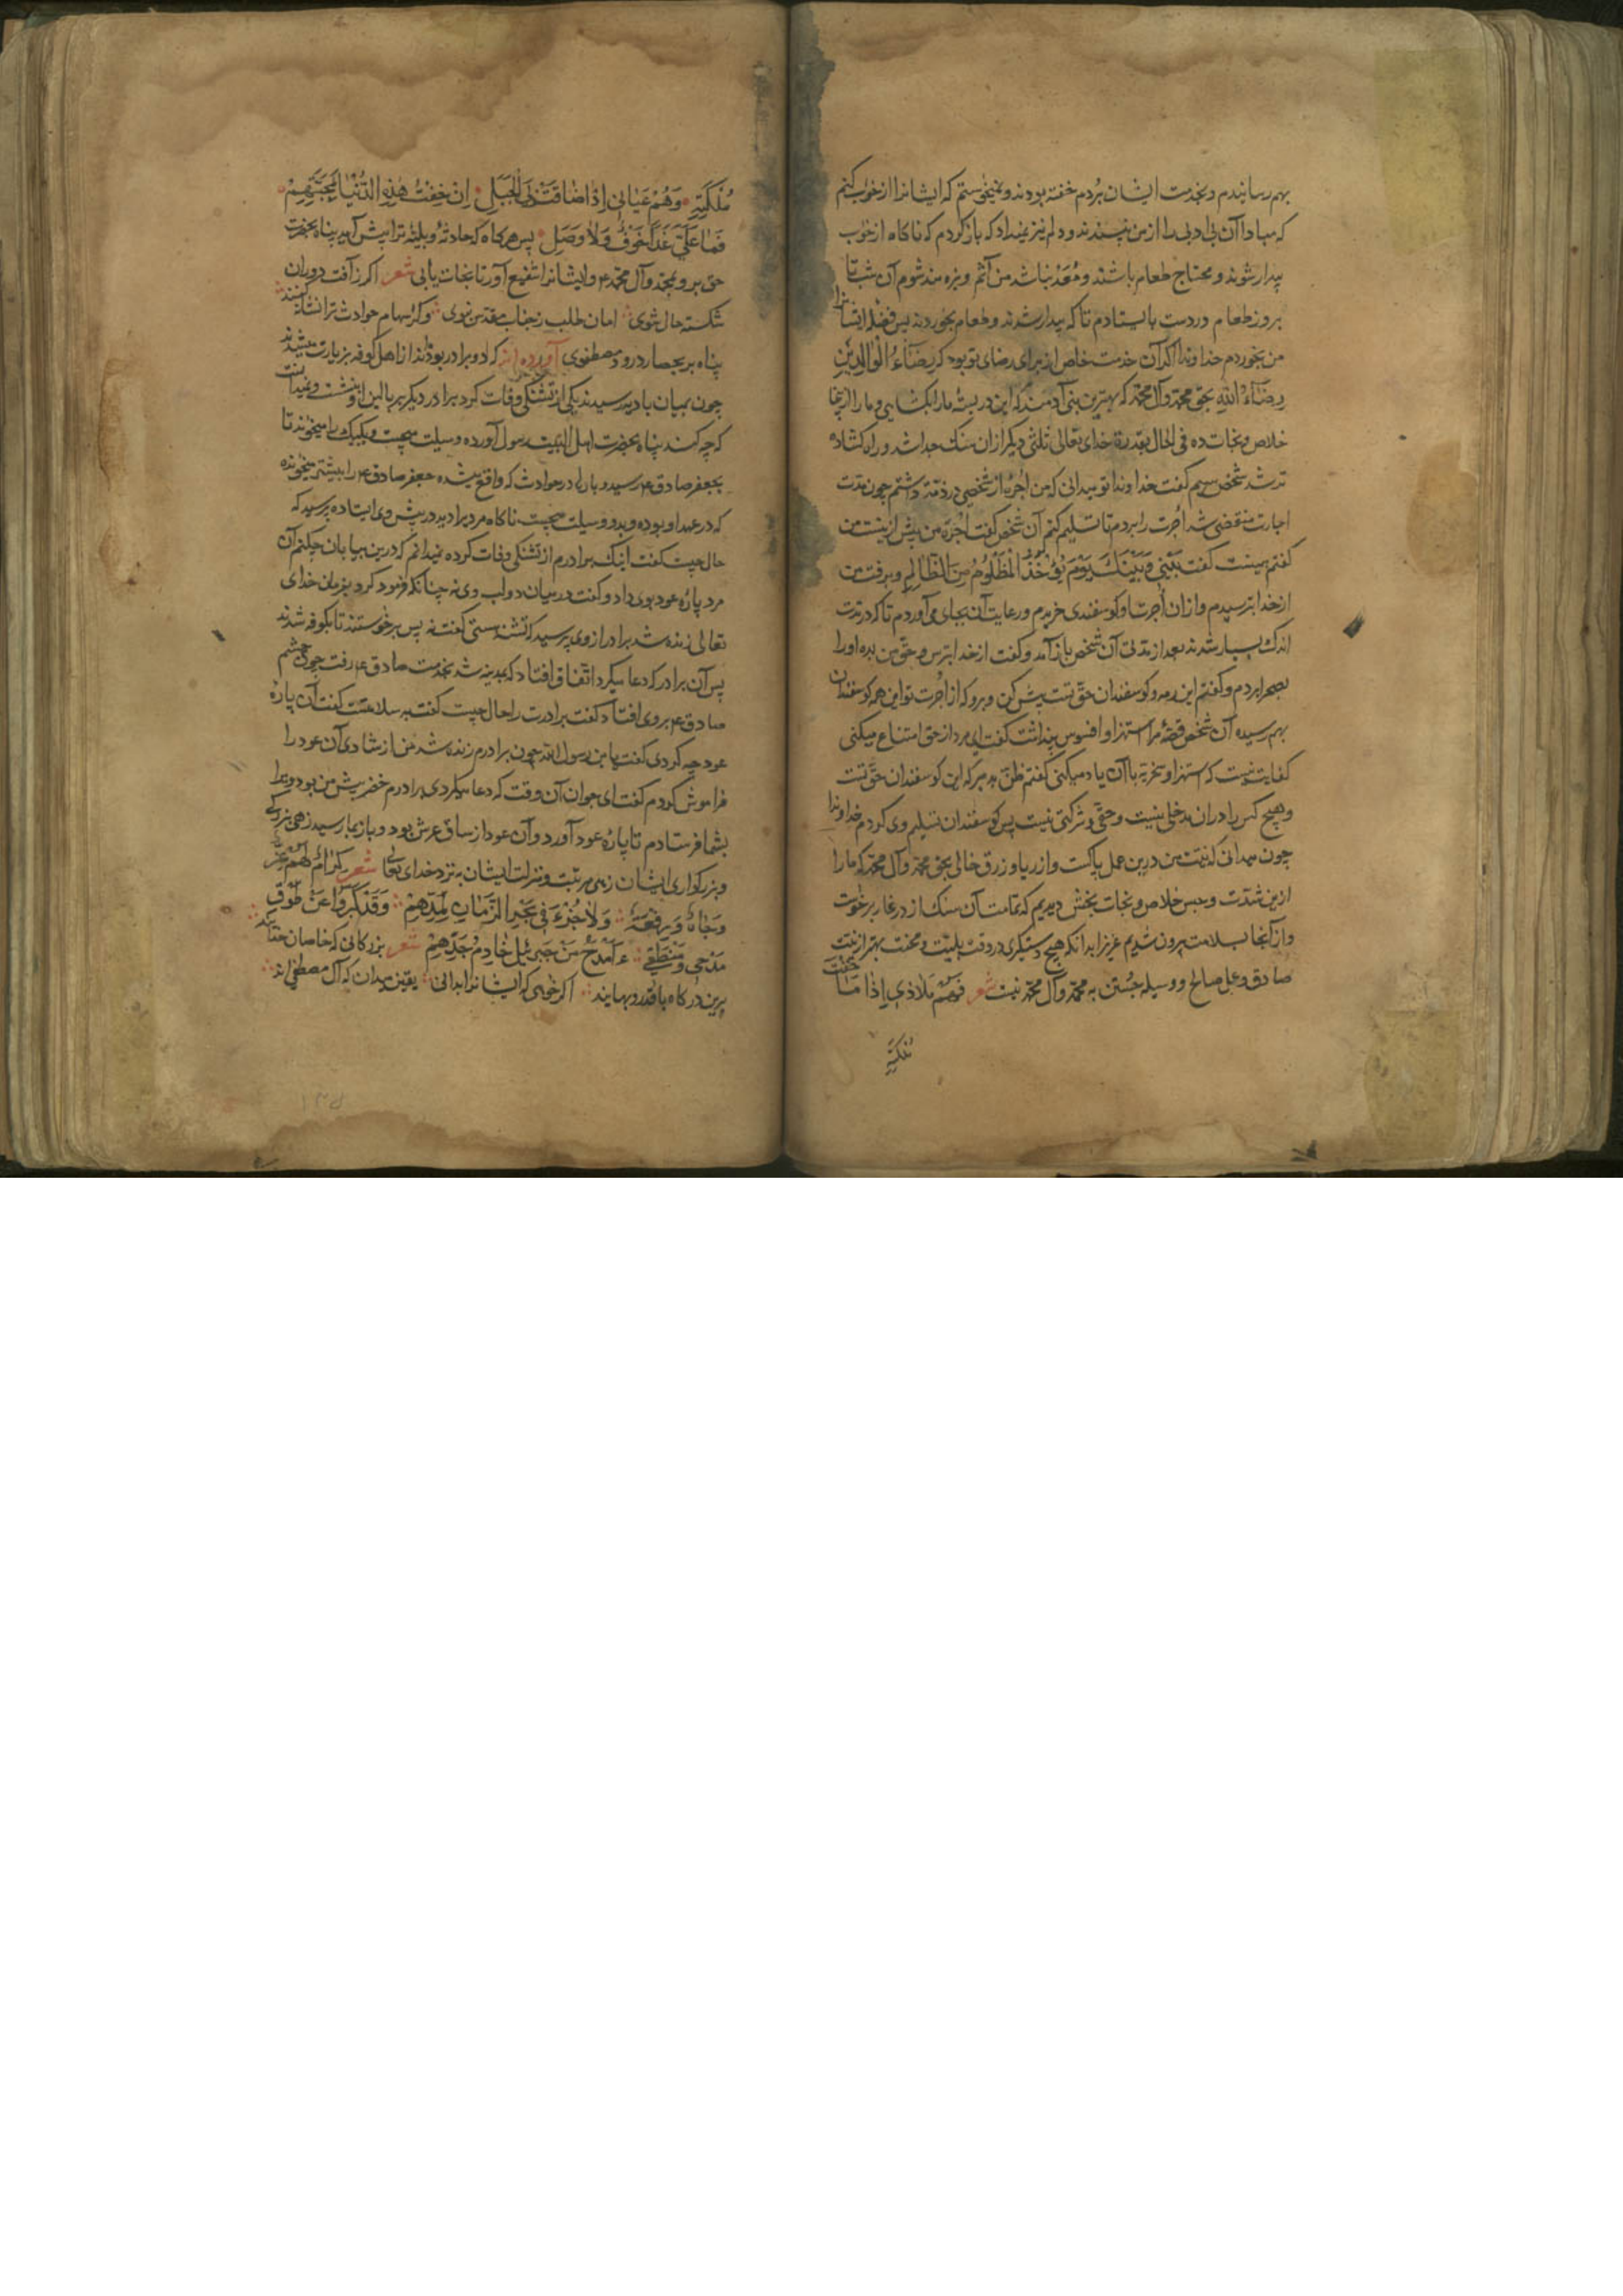 بهم رسانیدم و بخدمت ایشان بردم خفته بودند و نمیخواستم که ایشانرا از خواب کنم
که مبادا آن بی ادبی را از من نپسندند و دلم نیز نمیداد که بازکردم که ناکاه از خواب
بیدار شوند و محتاج طعام باشند و مُعَدّ نباشد من آثم و بزه مند شوم آن شب تا
بروز طعام در دست بایستادم تا که بیدار شدند و طعام بخوردند پس فضلهٔ ایشانرا
من بخوردم خداوندا اکر آن خدمت خاص از برای رضای تو بود که رِضَآءُ الْوَالِدَیْنِ
رِضَآءُ اللهِ بحق محمد و آل محمد که بهترین بنی آدمند که این در بسته ما را بکشایی و ما را ازینجا
خلاص و نجات ده فی الحال بقدرة خدای تعالی ثلثی دیکر از ان سنک جدا شد و راه کشاده
تر شد شخص سیم کفت خداوندا تو میدانی که من اُجرة از شخصی در ذمّه داشتم چون مدت
اجارت منقضی شد اُجرت را بردم تا تسلیم کنم آن شخص کفت اجرة من پیش ازینست من
کفتم همینست کفت بَیْنِی وَ بَیْنَكَ یَوْمَ یُؤْخَذُ الْمَظْلُومُ مِنَ الظَّالِمِ و برفت من
از خدا بترسیدم و از ان اُجرت او کوسفندی خریدم و رعایت آن بجای می آوردم تا که در مدت
اندك بسیار شدند بعد از مدتی آن شخص باز آمد و کفت از خدا بترس و حق من بده او را
بصحرا بردم و کفتم این رمه و کوسفندان حقّ تست پیش کن و برو که از اُجرت تو این همه کوسفندان
بهم رسیده آن شخص قصهٔ مرا استهزا و افسوس پنداشت کفت ای مرد از حق امتناع میکنی
کفایت نیست که استهزا و سخریه با آن یاد میکنی کفتم ظنّ بد مبر که این کوسفندان حقّ تست
و هیچ کس را در ان مدخلی نیست و حقّی و شرکتی نیست پس کوسفندان تسلیم وی کردم خداوندا
چون میدانی که نیت من درین عمل پاکست و از ریا و زرق خالی بحق محمد و آل محمد که ما را
ازین شدّت و حبس خلاص و نجات بخش دیدیم که تمامت آن سنک از در غار برخواست
و از آنجا بسلامت بیرون شدیم عزیزا بدانکه هیچ دستکیری در وقت بلیّت و محنت بهتر از نیت
صادق و عمل صالح و وسیله جُستن به محمد و آل محمد نیست شعر فَهُمْ مَلَاذِي إِذَا مَا خِفْتُ
مُلَکَیَّهِ
مُلَکَیَّهِ وَهُمْ غِیَاثِي إِذَا ضَاقَتْ بِيَ الْحِیَلُ إِنْ خِفْتُ هٰذِهِ الدُّنْیَا بِحُبِّهِمْ
فَمَا عَلَيَّ غَدًا خَوْفٌ وَلَا وَجَلُ پس هرکاه که حادثهٔ و بلیّهٔ ترا پیش آید پناه بحضرت
حق بر و بمحمد و آل محمد ع و ایشانرا شفیع آور تا نجات یابی شعر اکر ز آفت دوران
شکسته حال شوی امان طلب ز جناب مقدس نبوی وکر سهام حوادث ترا نشانه کنند
پناه بر بحصار درود مصطفوی آورده اند که دو برادر بودند از اهل کوفه بزیارت میشدند
چون بمیان بادیه رسیدند یکی از تشنکی وفات کرد برادر دیکر بر بالین او بنشست و نمیدانست
که چه کند پناه بحضرت اهل البیت رسول آورده وسیلت میجست و یکیك را میخواند تا
بجعفر صادق ع رسید و باز در حوادث که واقع میشد جعفر صادق ع را بیشتر میخوانده
که در عهد او بوده و بدو وسیلت میجست ناکاه مردی را دید در پیش وی ایستاده پرسید که
حال چیست کفت اینك برادرم از تشنکی وفات کرده نمیدانم که درین بیابان چکنم آن
مرد پارهٔ عود بوی داد و کفت در میان دو لب وی نه چنانکه فرمود کرد بفرمان خدای
تعالی زنده شد برادر از وی پرسید که تشنه هستی کفت نه پس برخواستند تا بکوفه شدند
پس آن برادر که دعا میکرد اتّفاق افتاد که بمدینه شد بخدمت صادق ع رفت چون چشم
صادق ع بروی افتاد کفت برادرت را حال چیست کفت بسلامتست کفت آن پارهٔ
عود چه کردی کفت یا بن رسول الله چون برادرم زنده شد من از شادی آن عود را
فراموش کردم کفت ای جوان آن وقت که دعا میکردی برادرم خضر پیش من بود ویرا
بشما فرستادم تا پارهٔ عود آورد و آن عود از ساق عرش بود و باز بما رسید زهی بزرکی
و بزرکواری ایشان زهی مرتبت و منزلت ایشان به نزد خدای تعالی شعر کِرَامٌ لَهُمْ عِزٌّ
وَجَاهٌ وَرِفْعَةٌ وَلَا جُزْءَ فِي الزَّمَانِ لِمَدِّهِمْ وَقَدْ کَبُرُوا عَنْ طَوْقِ
مَدْحِي وَمَنْطِقِي ءَأَمْدَحُ مَنْ جَبْرَئِیلُ خَادِمُ جَدِّهِمْ شعر بزرکانی که خاصان خدایند
برین درکاه با قدر و بهایند اکر خواهی که ایشانرا بدانی یقین میدان که آل مصطفی اند